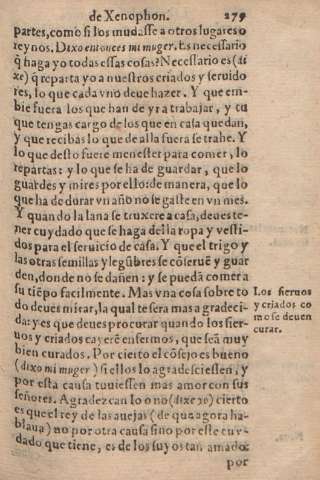 de Xenophon. 279
partes, como si los mudasse a otros lugares o
reynos. Dixo entonces mi muger. Es necessario
q̃ haga yo todas essas cosas? Necessario es (di
xe) q̃ reparta yo a nuestros criados y seruido
res, lo que cada vno deue hazer. Y que em-
bie fuera los que han de yr a trabajar, y tu
que tengas cargo de los que en casa quedan,
y que recibas lo que de alla fuera se trahe. Y
lo que desto fuere menester para comer, lo
repartas: y lo que se ha de guardar, que lo
guardes y mires por ello: de manera, que lo
que ha de durar vn año no se gaste en vn mes.
Y quando la lana se truxere a casa, deues te-
ner cuydado que se haga della ropa y vesti-
dos para el seruicio de casa. Y que el trigo y
las otras semillas y legũbres se cõserue y guar
den, donde no se dañen: y se puedã comer a
su tiẽpo facilmente. Mas vna cosa sobre to
do deues mirar, la qual te sera mas agradeci-
da: y es que deues procurar quando los sier-
uos y criados cayerẽ enfermos, que seã muy
bien curados. Por cierto el cõsejo es bueno
(dixo mi muger) si ellos lo agradesciessen, y
por esta causa tuuiessen mas amor con sus
señores. Agradezcan lo o no (dixe yo) cierto
es que el rey de las auejas (de que agora ha-
blaua) no por otra causa sino por este cuy-
dado que tiene, es de los suyos tan amado:
por
Los sieruos
y criados co
mo se deuen
curar.